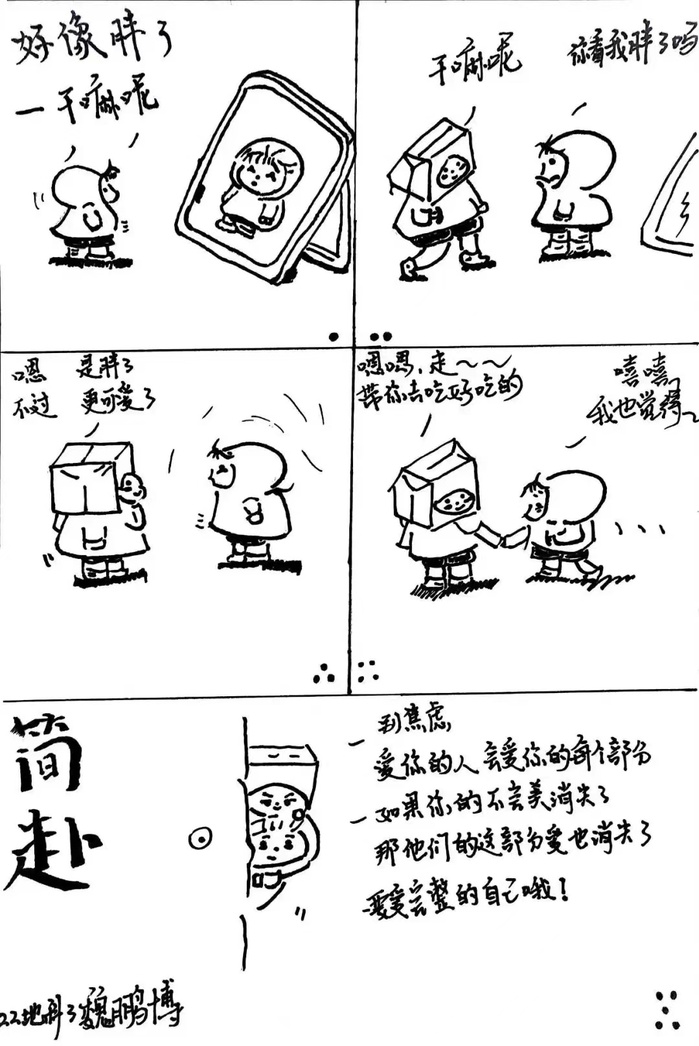 好像胖了
一干嘛呢
干嘛呢
你看我胖了吗
嗯 是胖了
不过 更可爱了
嗯嗯，走～～
带你去吃好吃的
嘻嘻
我也觉得~
简赴
一别焦虑
爱你的人会爱你的每个部分
一如果你的不完美消失了
那他们的这部分爱也消失了
一要爱完整的自己哦！
22地科了魏鹏博